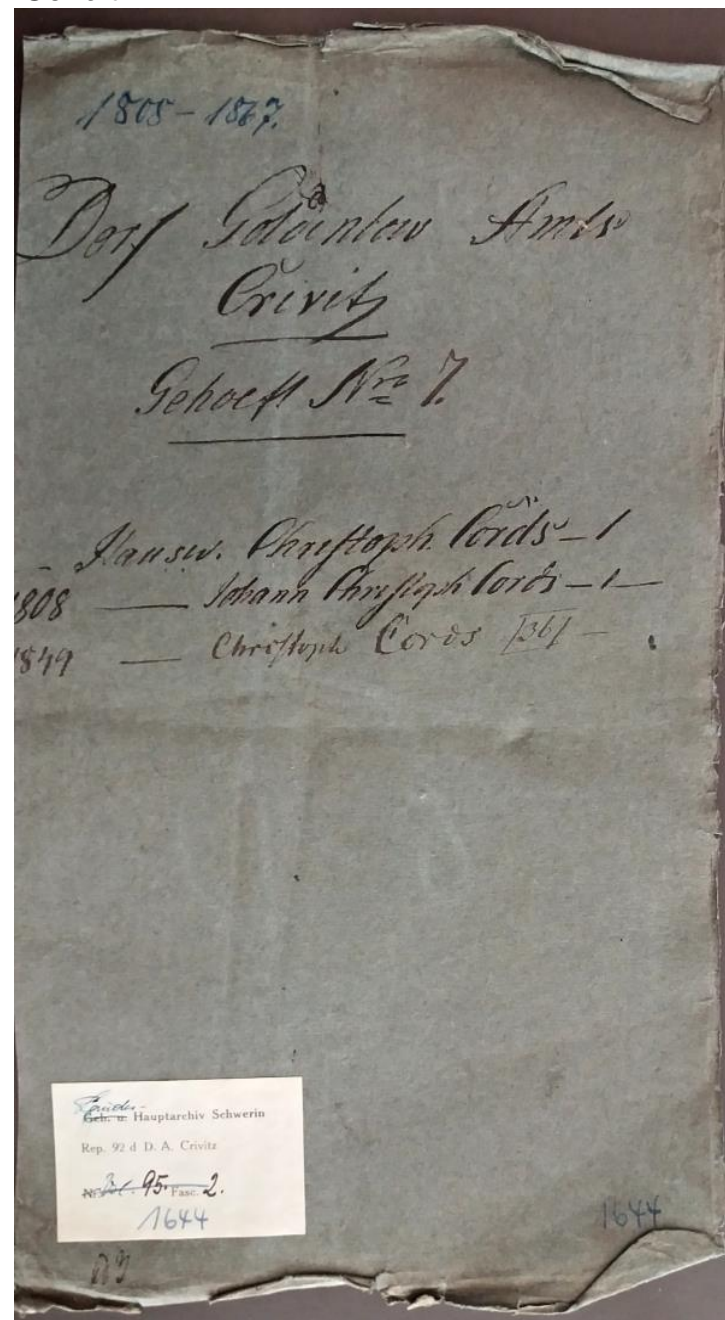 1808 - 1867.
Dorf Goldenbow Amts
Crivitz
Gehoeft Nro 7.
- Hausw. Christoph Cords - 1
1808 — Johann Christoph Cords - 1 —
1849 — Christoph Cords [36] -
Geh. u. Hauptarchiv Schwerin
Rep. 92 d D. A. Crivitz
Nr. 95. Fasc. 2.
1644
1644